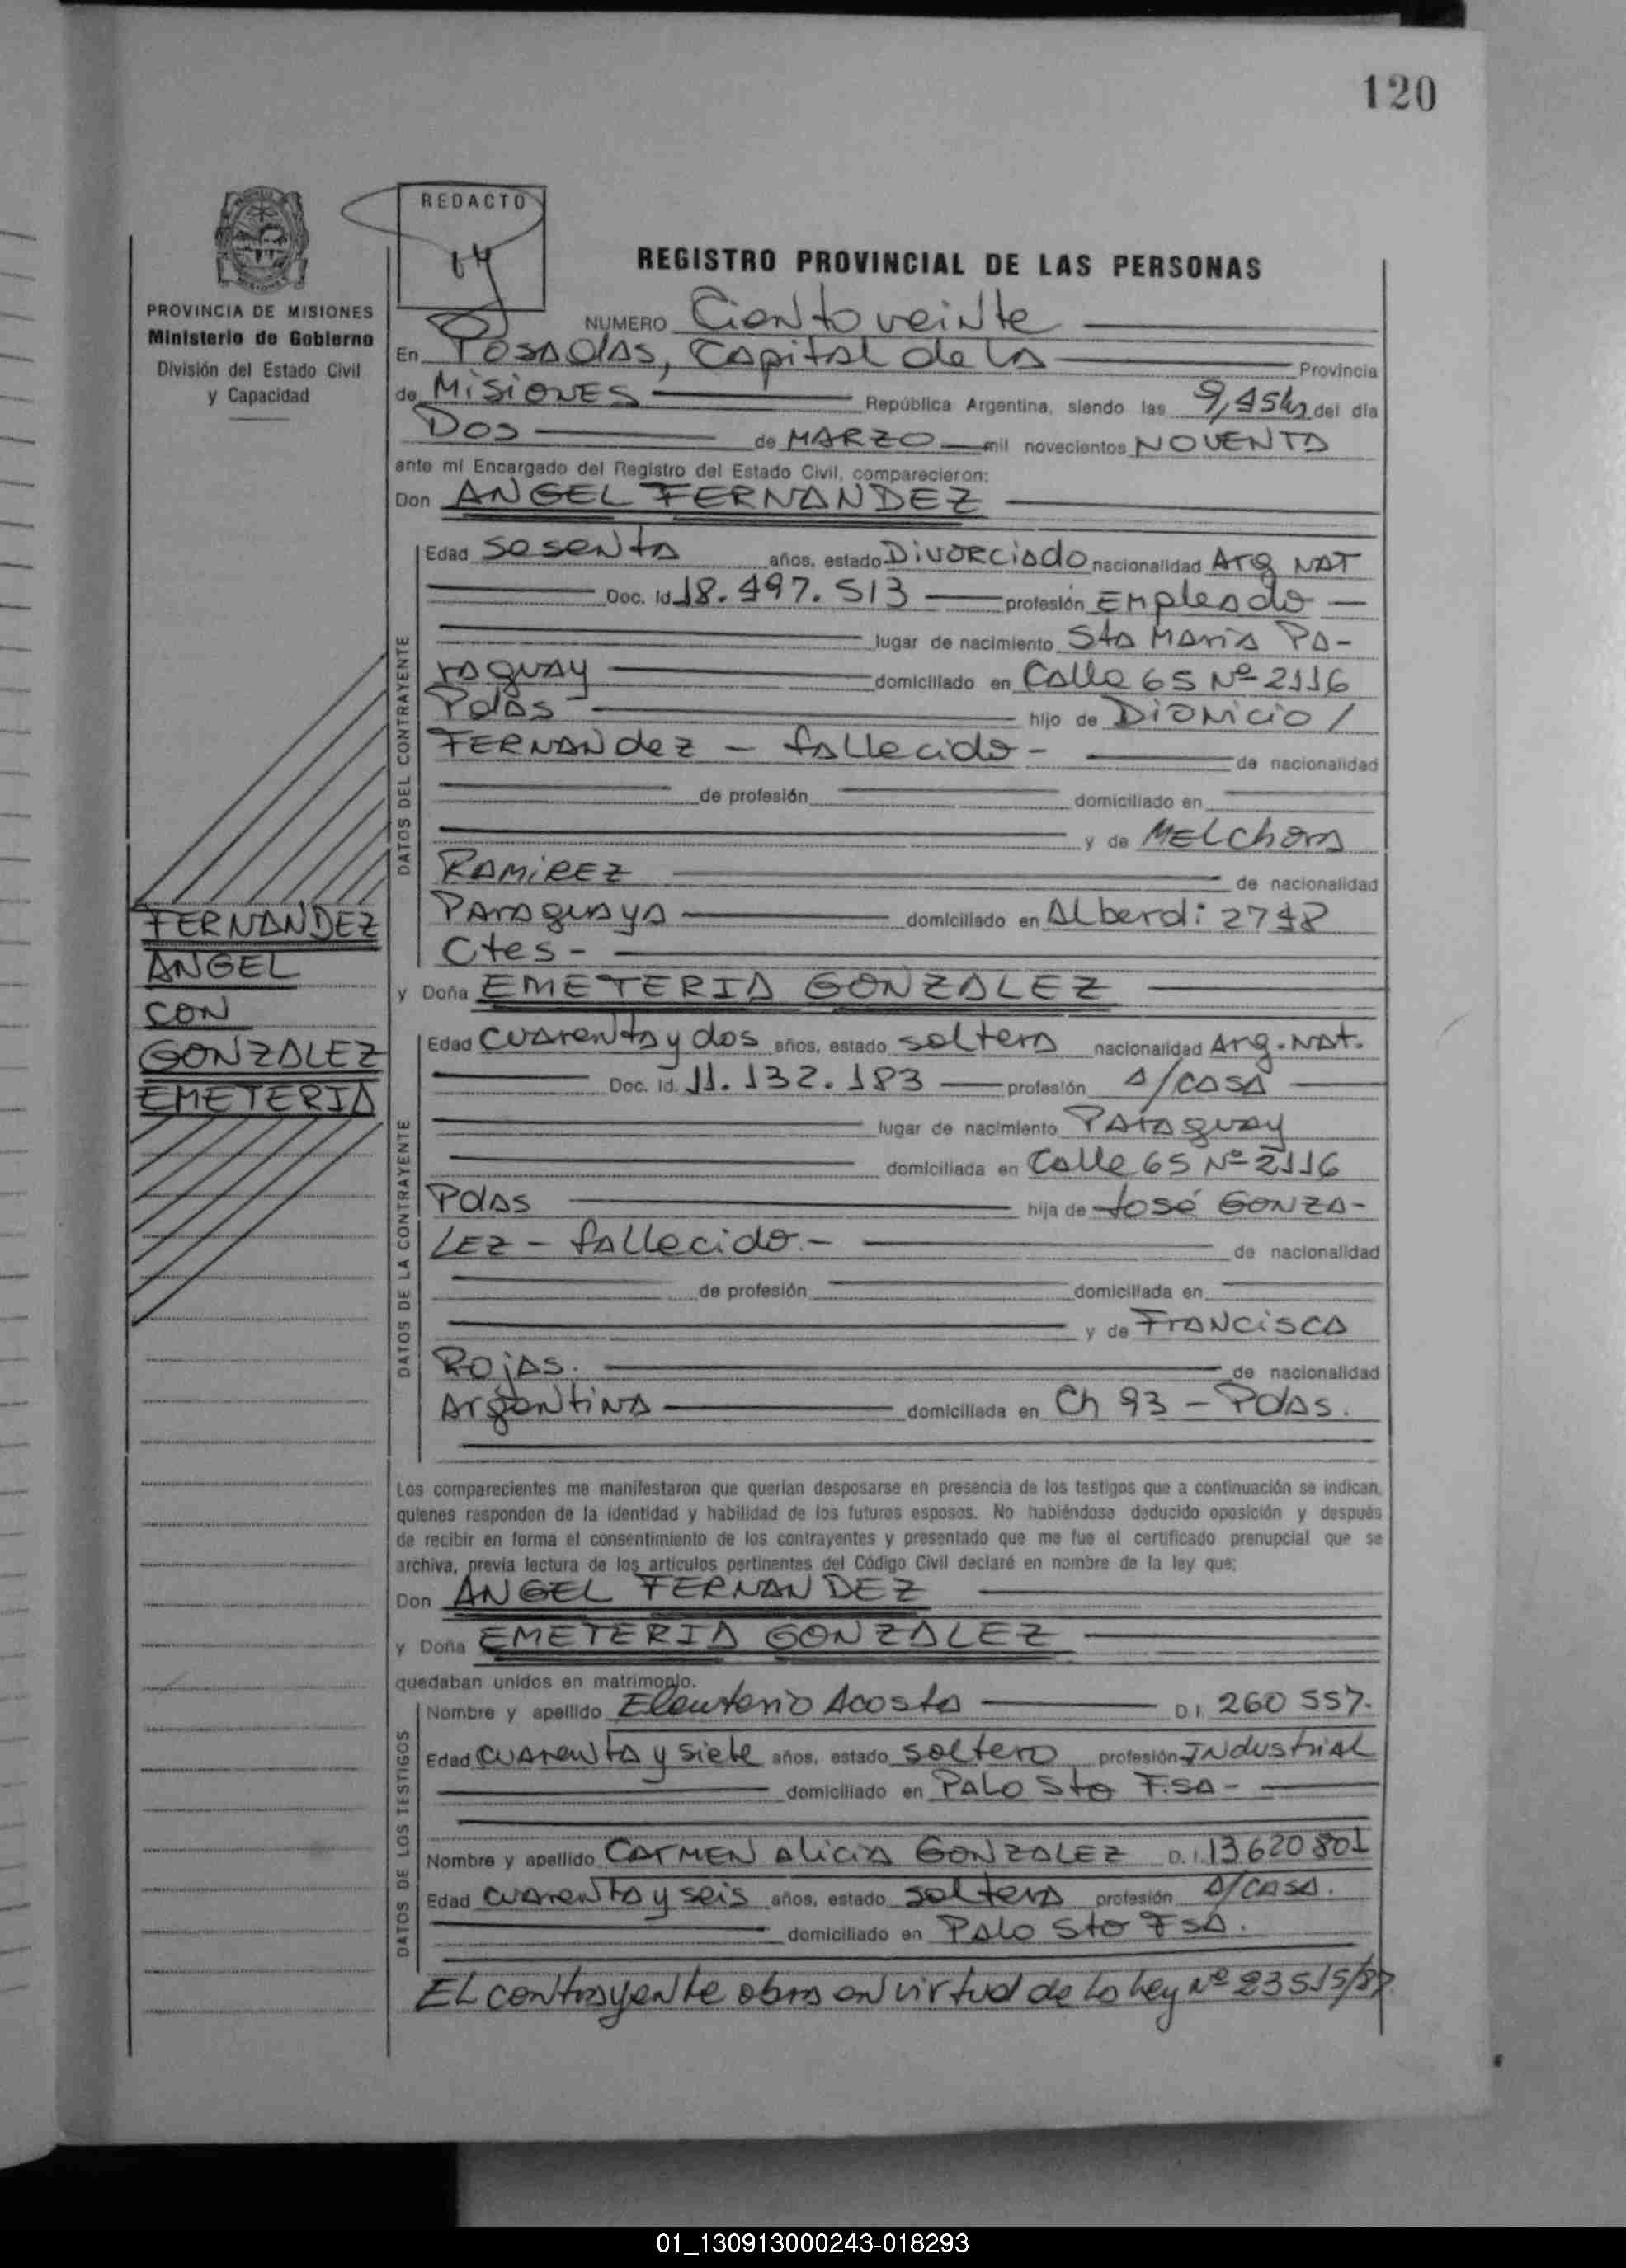 120
REDACTO
14
REGISTRO PROVINCIAL DE LAS PERSONAS
PROVINCIA DE MISIONES
Ministerio de Gobierno
División del Estado Civil
y Capacidad
NUMERO Ciento veinte
En Posadas, Capital de la Provincia
de Misiones República Argentina, siendo las 9,45hs del día
Dos de MARZO mil novecientos NOVENTA
ante mí Encargado del Registro del Estado Civil, comparecieron:
Don ANGEL FERNANDEZ
DATOS DEL CONTRAYENTE
Edad sesenta años, estado Divorciado nacionalidad Arg NAT
Doc. Id 18.497.513 profesión Empleado
lugar de nacimiento Sta Maria Pa-
raguay domiciliado en Calle 65 Nº 2116
Pdas hijo de Dionicio /
FERNANdez - fallecido - de nacionalidad
de profesión domiciliado en
y de MELchora
RAMIREZ de nacionalidad
Paraguaya domiciliado en Alberdi 2748
Ctes -
FERNANDEZ
ANGEL
CON
GONZALEZ
EMETERIA
y Doña EMETERIA GONZALEZ
DATOS DE LA CONTRAYENTE
Edad cuarenta y dos años, estado soltera nacionalidad Arg. NAT.
Doc. Id. 11.132.183 profesión s/casa
lugar de nacimiento Paraguay
domiciliada en Calle 65 Nº 2116
Pdas hija de José GONZA-
LEZ - fallecido - de nacionalidad
de profesión domiciliada en
y de Francisca
Rojas. de nacionalidad
Argentina domiciliada en Ch 93 - Pdas.
Los comparecientes me manifestaron que querían desposarse en presencia de los testigos que a continuación se indican,
quienes responden de la identidad y habilidad de los futuros esposos. No habiéndose deducido oposición y después
de recibir en forma el consentimiento de los contrayentes y presentado que me fue el certificado prenupcial que se
archiva, previa lectura de los artículos pertinentes del Código Civil declaré en nombre de la ley que:
Don ANGEL FERNANDEZ
y Doña EMETERIA GONZALEZ
quedaban unidos en matrimonio.
DATOS DE LOS TESTIGOS
Nombre y apellido Eleuterio Acosta D.I. 260 557.
Edad cuarenta y siete años, estado soltero profesión Industrial
domiciliado en Palo Sto F.SA -
Nombre y apellido CARMEN Alicia GONZALEZ D.I. 13620801
Edad cuarenta y seis años, estado soltera profesión s/casa.
domiciliado en Palo Sto FSA.
El contrayente obra en virtud de la Ley Nº 23515/87
01_130913000243-018293